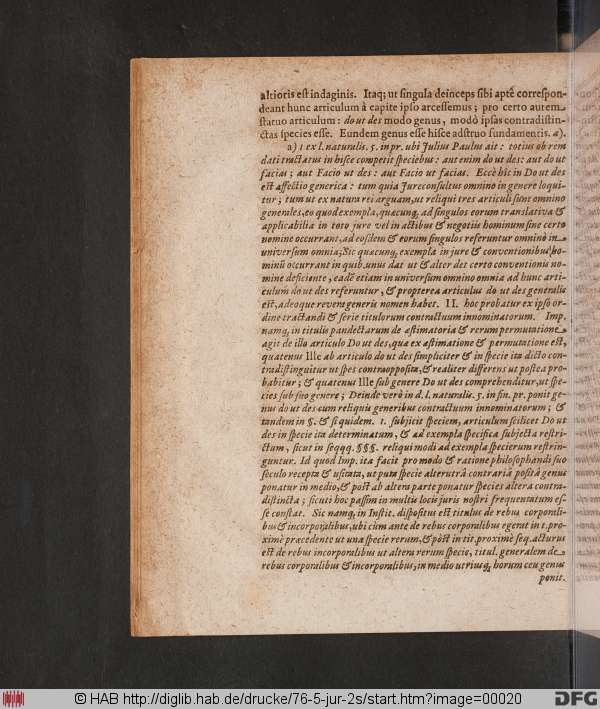 altioris est indaginis. Itaq; ut singula deinceps sibi aptè correspon-
deant hunc articulum à capite ipso arcessemus; pro certo autem
statuo articulum: do ut des modo genus, modò ipsas contradistin-
ctas species esse. Eundem genus esse hisce adstruo fundamentis. a).
a) 1 ex l. naturalis. 5. in pr. ubi Julius Paulus ait: totius ob rem
dati tractatus in hisce competit speciebus: aut enim do ut des: aut do ut
facias; aut Facio ut des: aut Facio ut facias. Eccè hîc in Do ut des
est affectio generica: tum quia Jureconsultus omnino in genere loqui-
tur; tum ut ex natura rei arguam, ut reliqui tres articuli sunt omnino
generales, eo quod exempla, quæcunq, ad singulos eorum translativa &
applicabilia in toto jure vel in actibus & negotiis hominum sine certo
nomine occurrant, ad eosdem & eorum singulos referuntur omninò in
universum omnia; Sic quæcunq, exempla in jure & conventionibus ho-
minũ occurrant in quib. unus dat ut & alter det certo conventionis no-
mine deficiente, eadẽ etiam in universum omnino omnia ad hunc arti-
culum do ut des referuntur, & propterea articulus do ut des generalis
est, adeoque revera generis nomen habet. II. hoc probatur ex ipso or-
dine tractandi & serie titulorum contractuum innominatorum. Imp.
namq, in titulis pandectarum de æstimatoria & rerum permutatione
agit de illo articulo Do ut des, qua ex æstimatione & permutatione est,
quatenus Ille ab articulo do ut des simpliciter & in specie ita dicto con-
tradistinguitur ut spes contraopposita, & realiter differens ut postea pro-
babitur; & quatenus Ille sub genere Do ut des comprehenditur, ut spe-
cies sub suo genere; Deinde verò in d. l. naturalis. 5. in fin. pr. ponit ge-
nus do ut des cum reliquis generibus contractuum innominatorum; &
tandem in §. & si quidem. 1. subjicit speciem, articulum scilicet Do ut
des in specie ita determinatum, & ad exempla specifica subjecta restri-
ctum, sicut in seqqq. §§§. reliqui modi ad exempla specierum restrin-
guntur. Id quod Imp. ita facit pro modo & ratione philosophandi suo
seculo recepta & usitata, ut puta specie alterutrâ contrariâ positâ genus
ponatur in medio, & pòst ab altera parte ponatur species altera contra-
distincta; sicuti hoc passim in multis locis juris nostri frequentatum es-
se constat. Sic namq, in Instit. dispositus est titulus de rebus corporali-
bus & incorporalibus, ubi cùm antè de rebus corporalibus egerat in t. pro-
ximè præcedente ut una specie rerum, & pòst in tit. proximè seq. acturus
est de rebus incorporalibus ut altera rerum specie, titul. generalem de
rebus corporalibus & incorporalibus, in medio utriusq, horum ceu genus
ponit.
© HAB http://diglib.hab.de/drucke/76-5-jur-2s/start.htm?image=00020
DFG